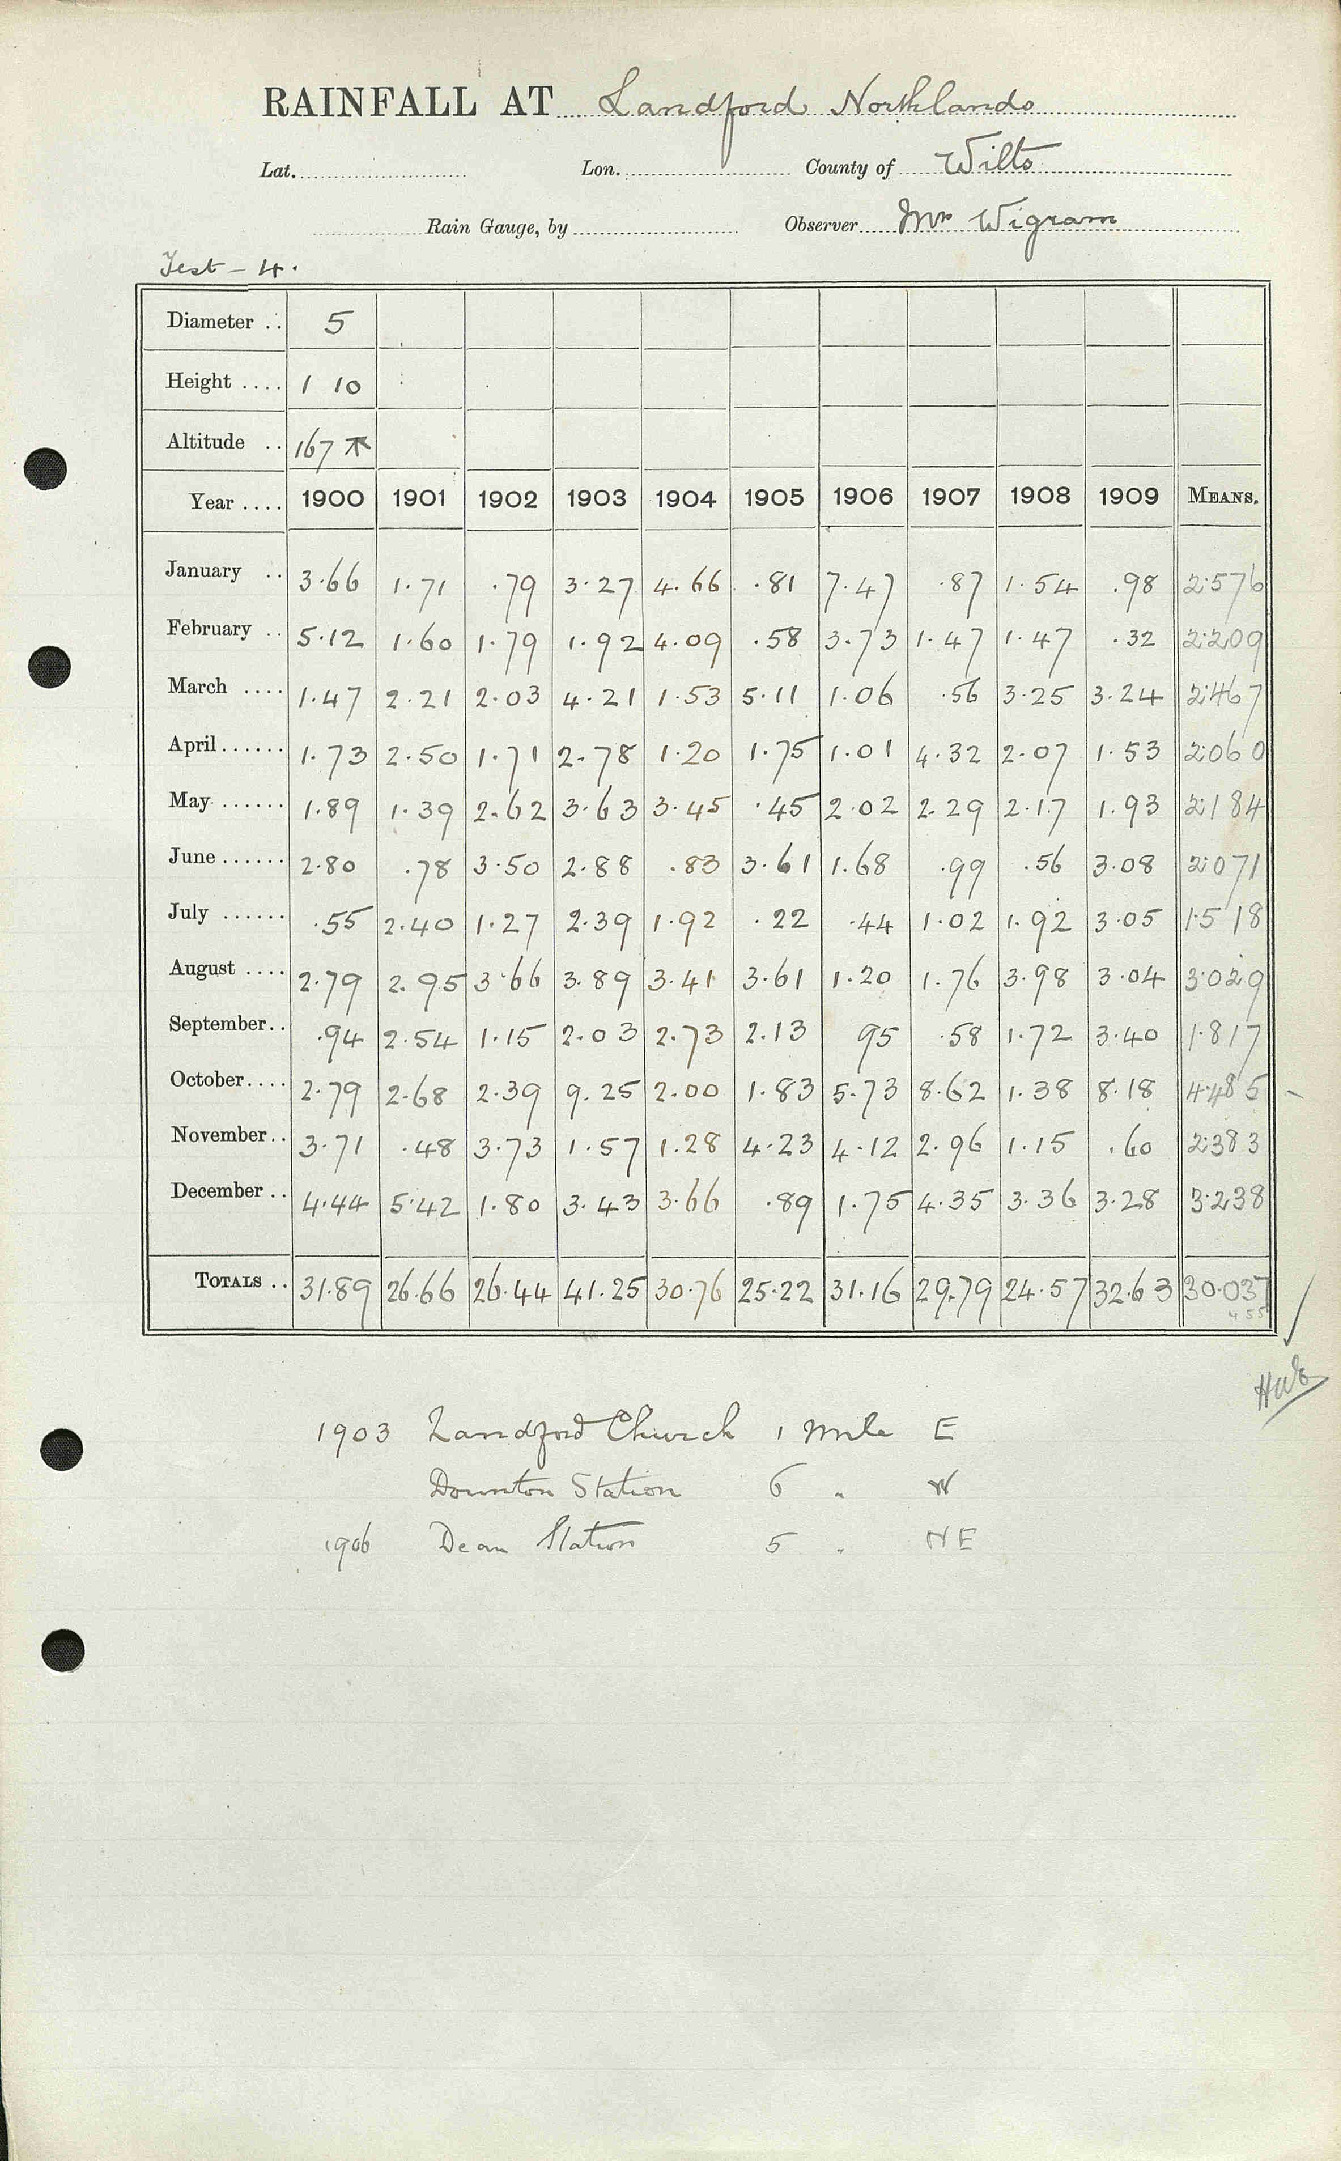 RAINFALL AT Landford Northlands
Lat. Lon. County of Wilts
Rain Gauge, by Observer Mrs Wigram
Test - 4.
Diameter .. 5
Height .... 1 10
Altitude .. 167
Year .... 1900 1901 1902 1903 1904 1905 1906 1907 1908 1909 MEANS.
January .. 3.66 1.71 .79 3.27 4.66 .81 7.47 .87 1.54 .98 2.576
February .. 5.12 1.60 1.79 1.92 4.09 .58 3.73 1.47 1.47 .32 2.209
March .... 1.47 2.21 2.03 4.21 1.53 5.11 1.06 .56 3.25 3.24 2.467
April...... 1.73 2.50 1.71 2.78 1.20 1.75 1.01 4.32 2.07 1.53 2.060
May ...... 1.89 1.39 2.62 3.63 3.45 .45 2.02 2.29 2.17 1.93 2.184
June ...... 2.80 .78 3.50 2.88 .83 3.61 1.68 .99 .56 3.08 2.071
July ...... .55 2.40 1.27 2.39 1.92 .22 .44 1.02 1.92 3.05 1.518
August .... 2.79 2.95 3.66 3.89 3.41 3.61 1.20 1.76 3.98 3.04 3.029
September.. .94 2.54 1.15 2.03 2.73 2.13 95 .58 1.72 3.40 1.817
October.... 2.79 2.68 2.39 9.25 2.00 1.83 5.73 8.62 1.38 8.18 4.485
November.. 3.71 .48 3.73 1.57 1.28 4.23 4.12 2.96 1.15 .60 2.383
December .. 4.44 5.42 1.80 3.43 3.66 .89 1.75 4.35 3.36 3.28 3.238
TOTALS .. 31.89 26.66 26.44 41.25 30.76 25.22 31.16 29.79 24.57 32.63 30.037
455
1903 Landford Church 1 mile E
Downton Station 6 " W
1906 Dean Station 5 " NE